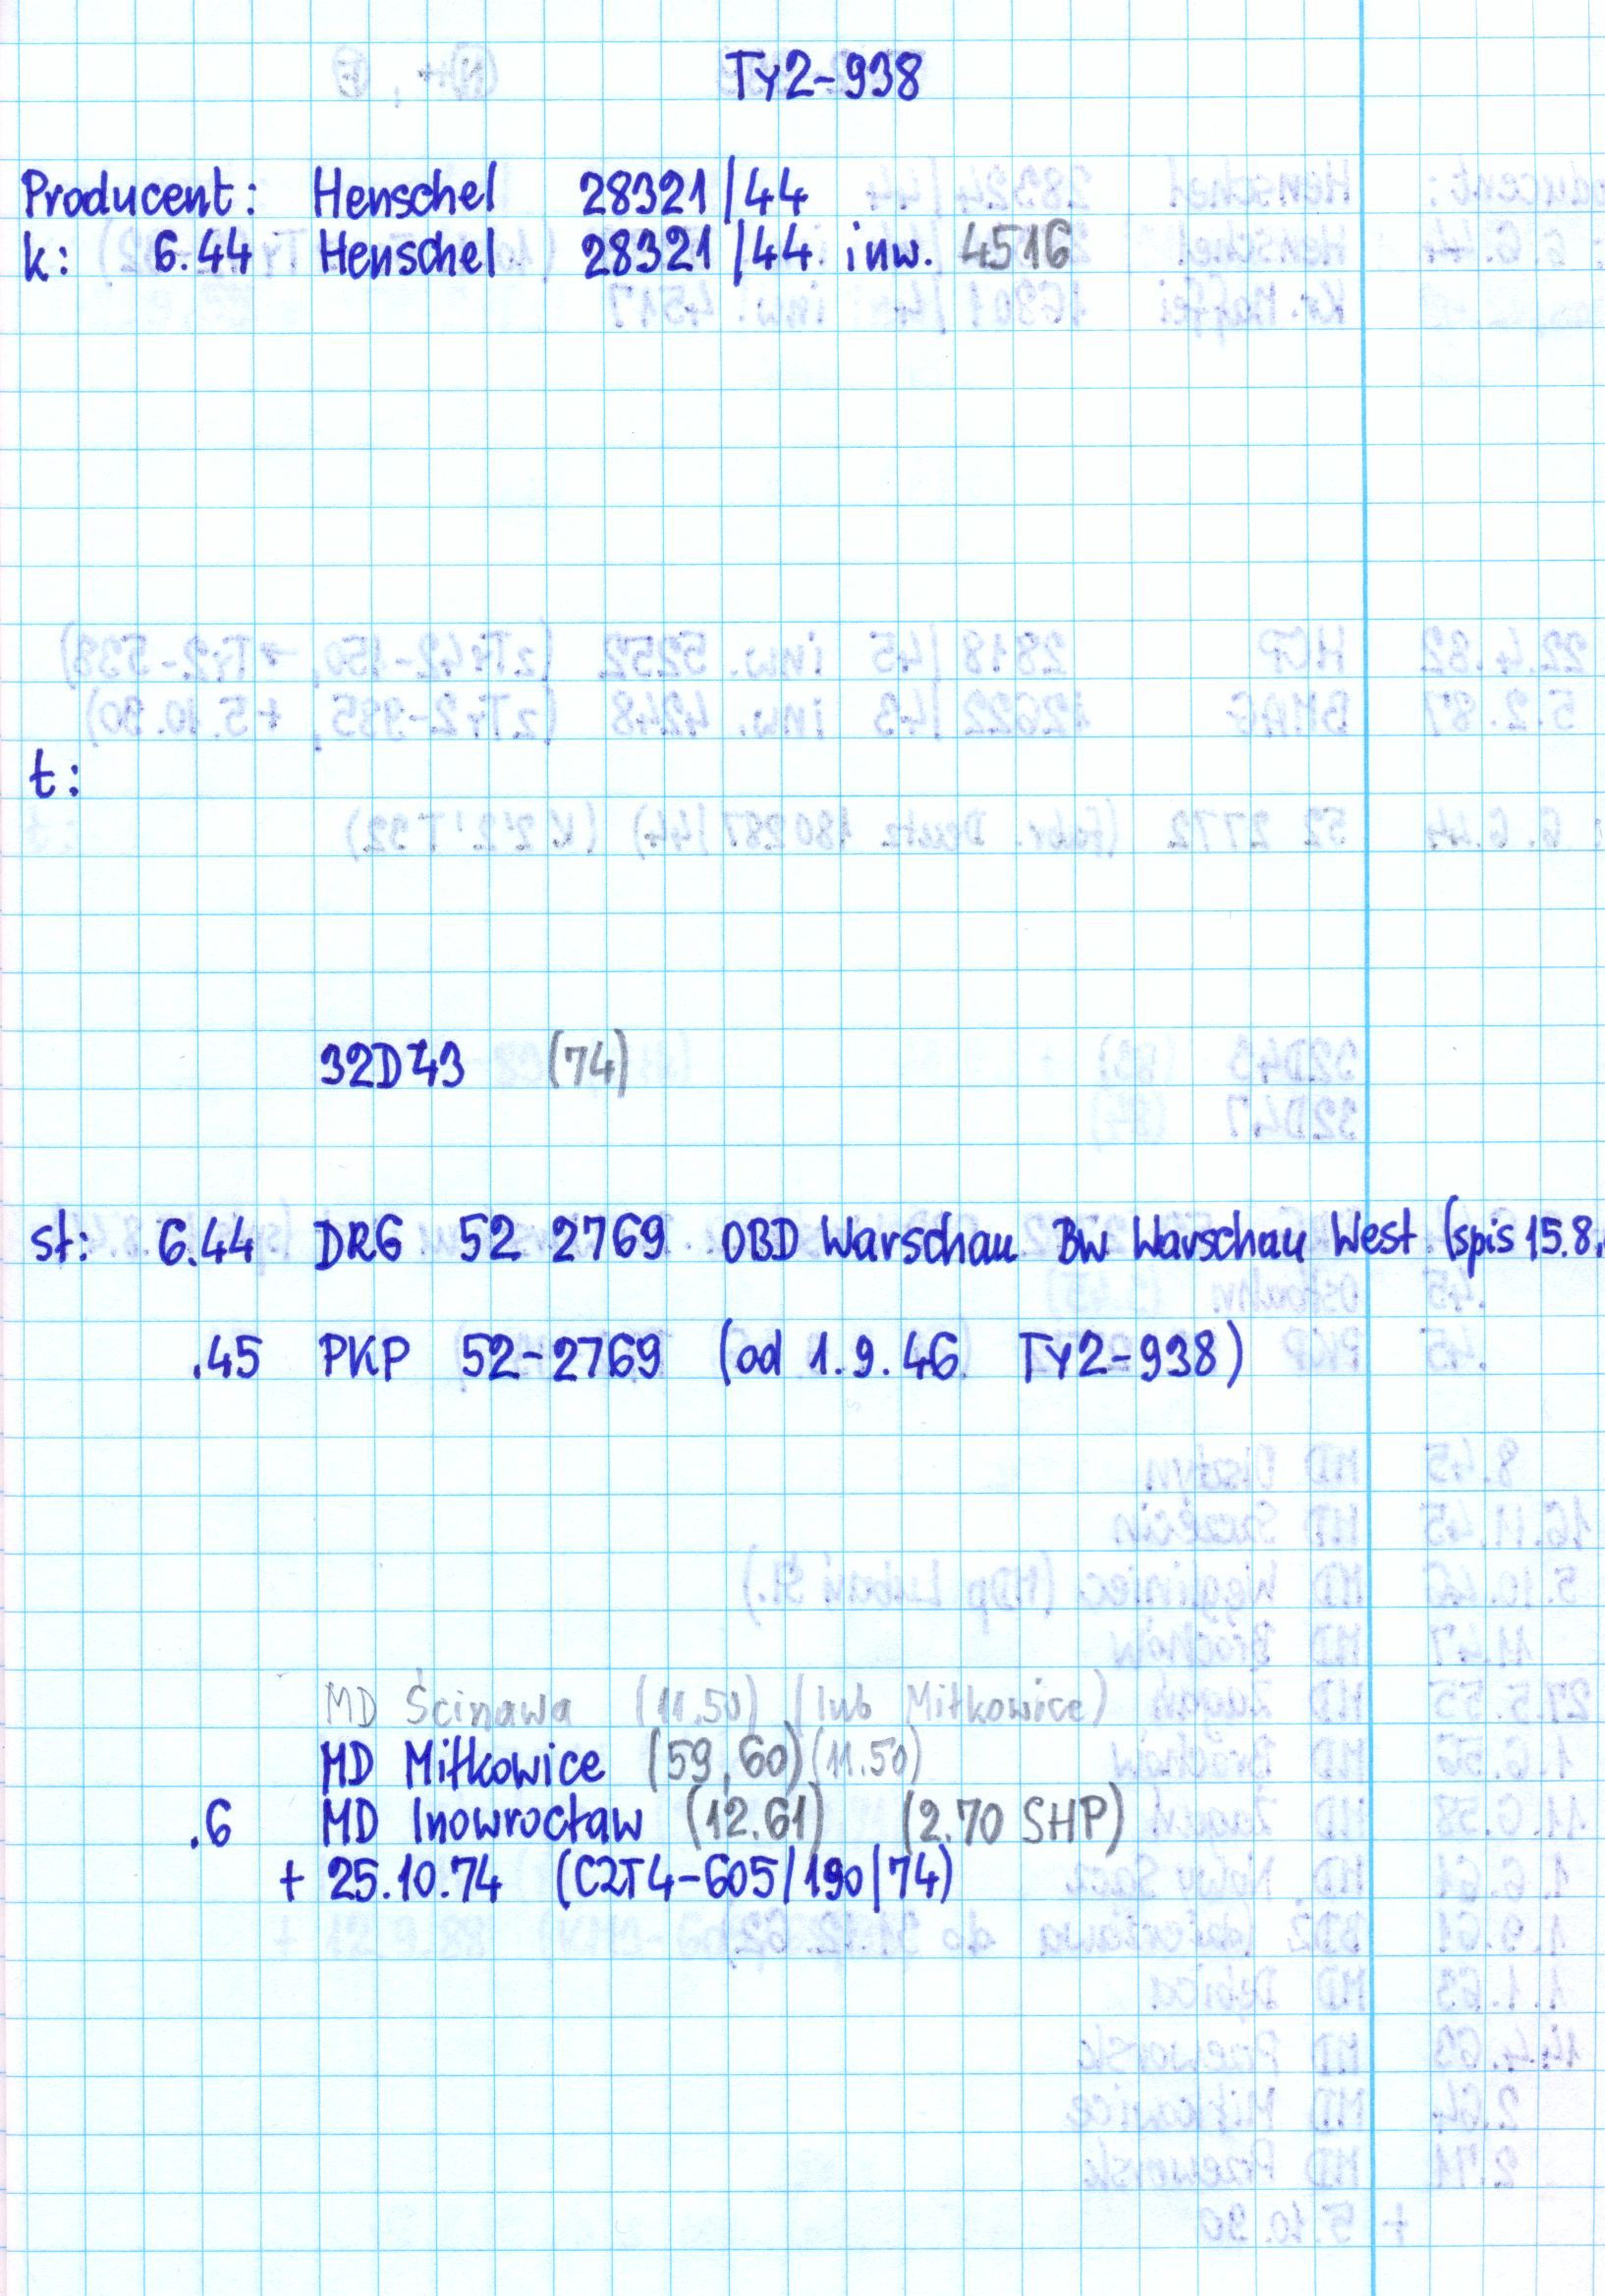 Ty2-938
Producent: Henschel 28321/44
k: 6.44 Henschel 28321/44 inw. 4516
t:
32D43 (74)
st: 6.44 DRG 52 2769 OBD Warschau Bw Warschau West (spis 15.8.
.45 PKP 52-2769 (od 1.9.46 Ty2-938)
MD Ścinawa (11.50) (lub Miłkowice)
MD Miłkowice (59,60) (11.50)
.6 MD Inowrocław (12.61) (2.70 SHP)
+ 25.10.74 (C2T4-605/190/74)